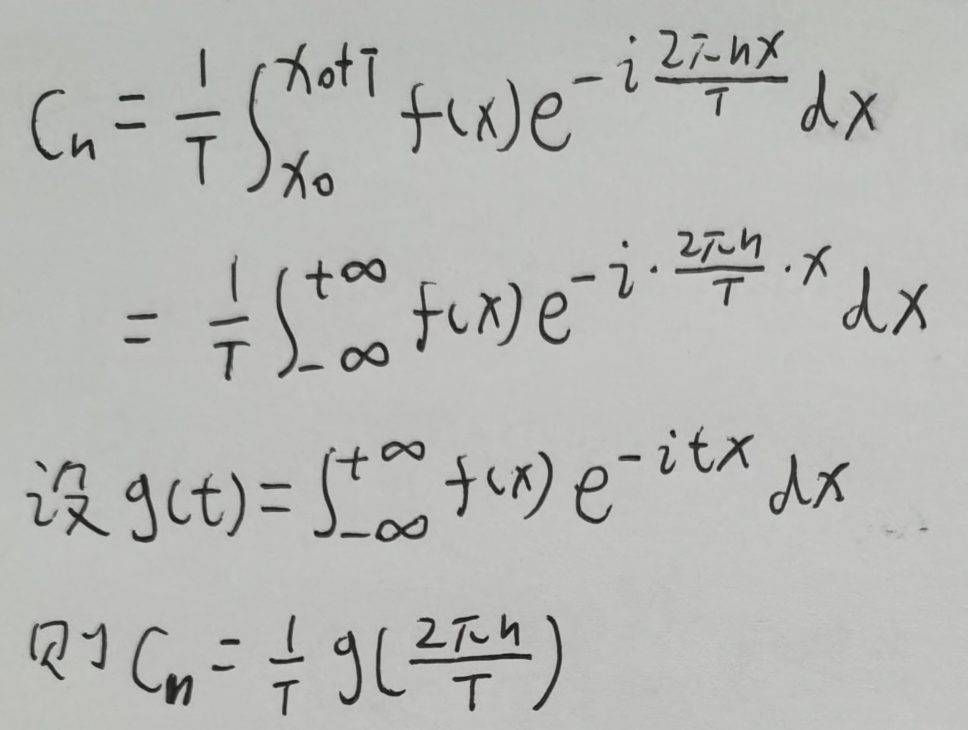 Cn = 1/T ∫_{x0}^{x0+T} f(x)e^{-i 2πnx/T} dx
= 1/T ∫_{-∞}^{+∞} f(x)e^{-i · 2πn/T · x} dx
设 g(t) = ∫_{-∞}^{+∞} f(x) e^{-itx} dx
则 Cn = 1/T g(2πn/T)